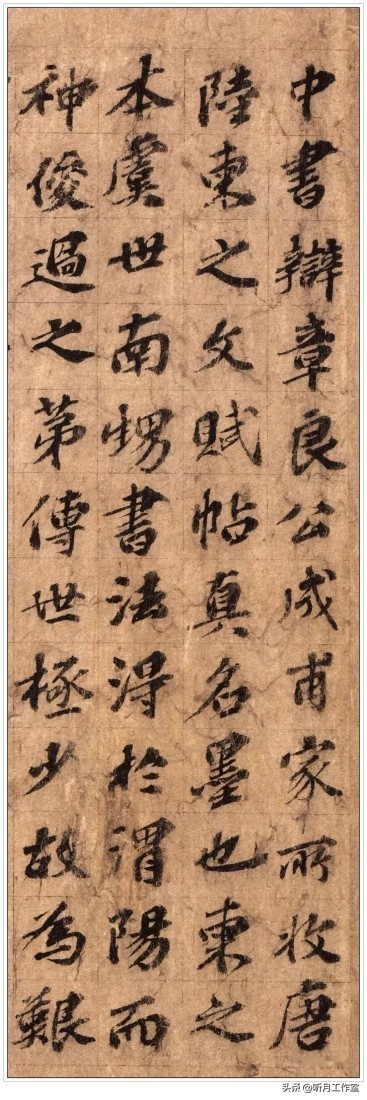 中書辯章良公成甫家所收唐
陸柬之文賦帖真名墨也柬之
本虞世南甥書法得於渭陽而
神俊過之第傳世極少故為艱
头条 @听月工作室